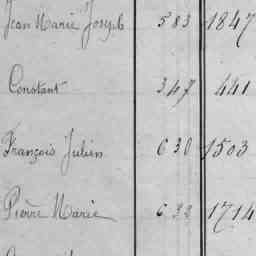 Jean Marie Joseph 583 1847
Constant 347 441
François Julien 630 1503
Pierre Marie 632 1714